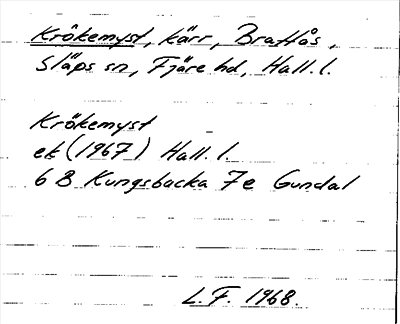 Krökemyst, kärr, Brattås,
Släps sn, Fjäre hd, Hall. l.
Krökemyst
ek (1967) Hall. l.
6 B Kungsbacka 7e Gundal
L.F. 1968.